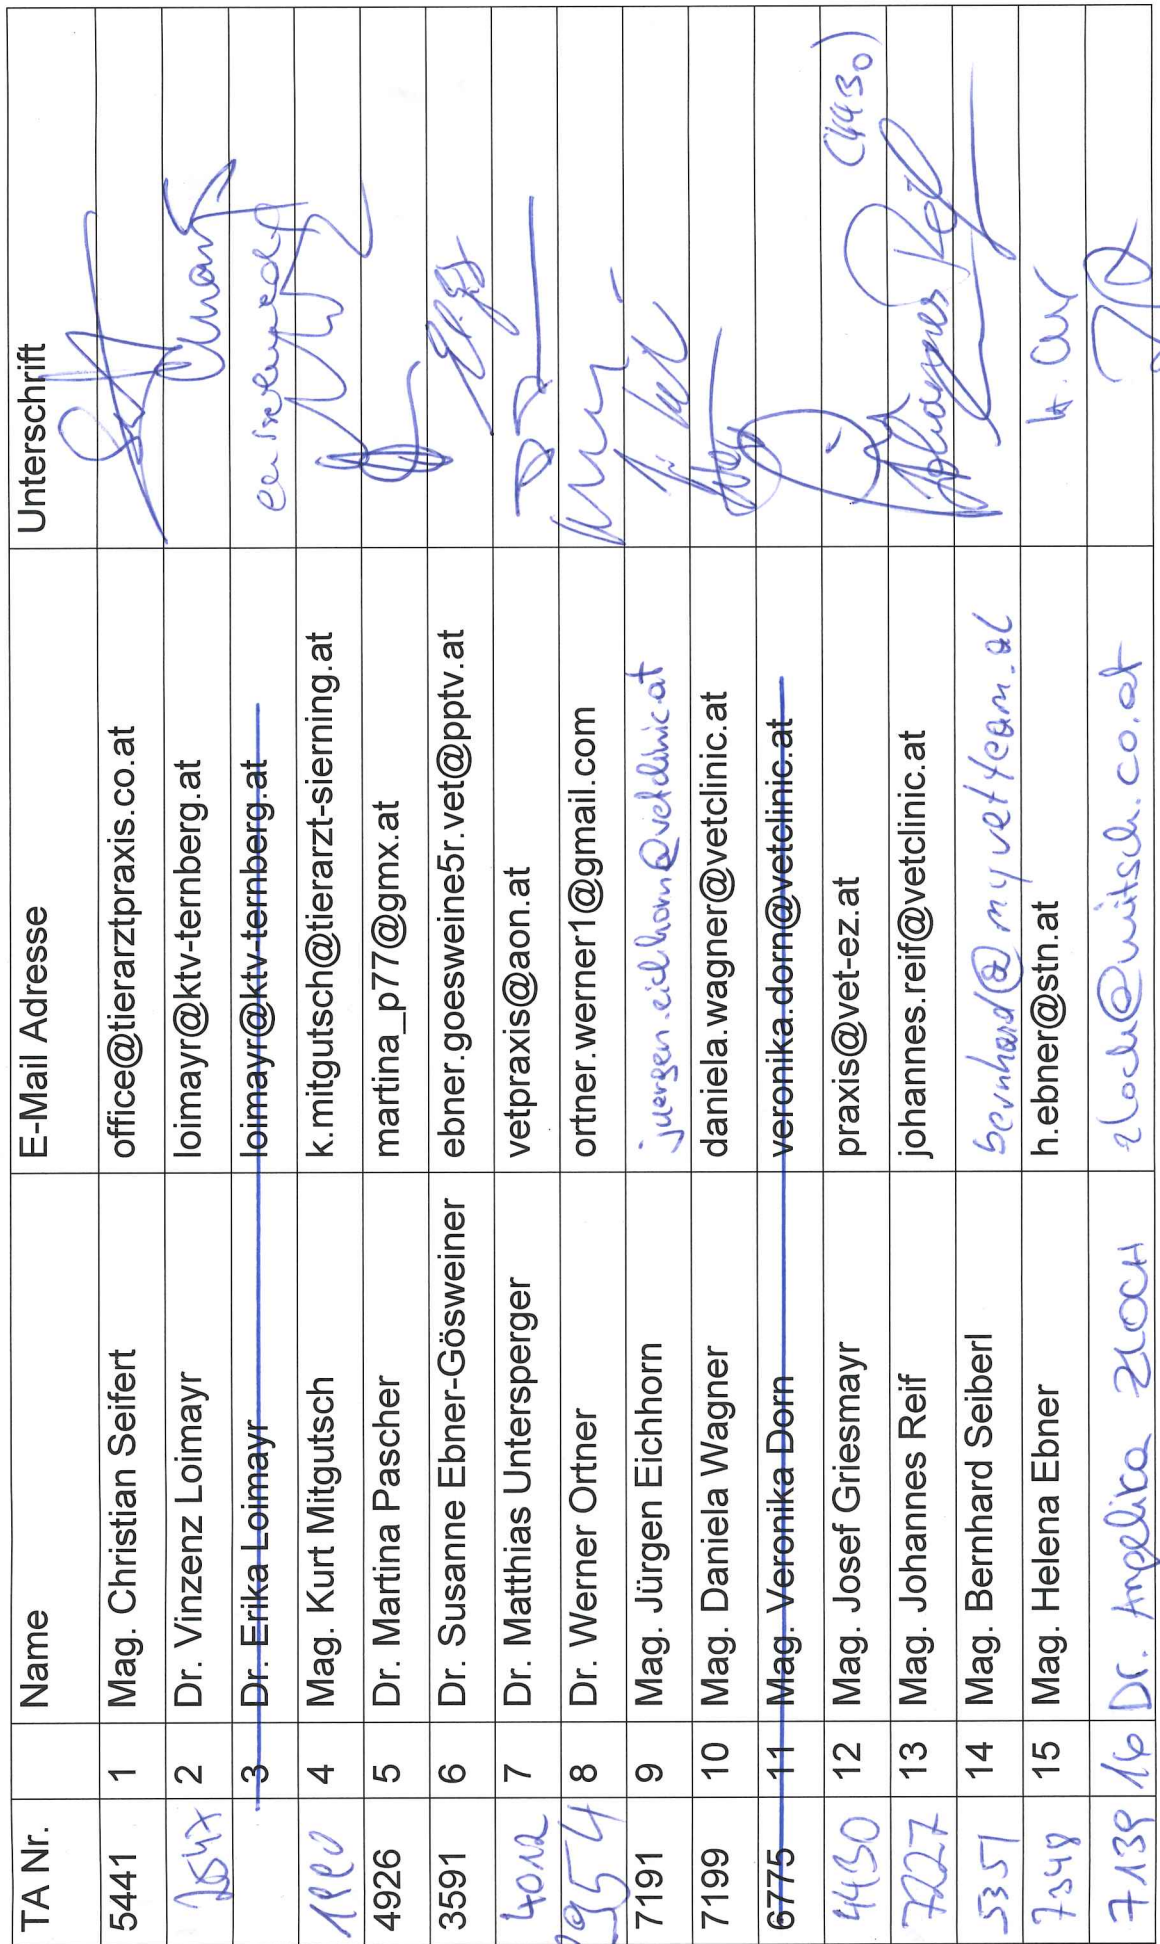 TA Nr. Name E-Mail Adresse Unterschrift
5441 1 Mag. Christian Seifert office@tierarztpraxis.co.at
2 Dr. Vinzenz Loimayr loimayr@ktv-ternberg.at
3 Dr. Erika Loimayr loimayr@ktv-ternberg.at
4 Mag. Kurt Mitgutsch k.mitgutsch@tierarzt-sierning.at
4926 5 Dr. Martina Pascher martina_p77@gmx.at
3591 6 Dr. Susanne Ebner-Gösweiner ebner.goesweine5r.vet@pptv.at
4012 7 Dr. Matthias Untersperger vetpraxis@aon.at
2954 8 Dr. Werner Ortner ortner.werner1@gmail.com
7191 9 Mag. Jürgen Eichhorn juergen.eichhorn@vetclinic.at
7199 10 Mag. Daniela Wagner daniela.wagner@vetclinic.at
6775 11 Mag. Veronika Dorn veronika.dorn@vetclinic.at
4430 12 Mag. Josef Griesmayr praxis@vet-ez.at (4430)
7227 13 Mag. Johannes Reif johannes.reif@vetclinic.at Johannes Reif
5351 14 Mag. Bernhard Seiberl bernhard@myvetteam.at
7348 15 Mag. Helena Ebner h.ebner@stn.at
7139 16 Dr. Angelika ZLOCH zloch@utsch.co.at